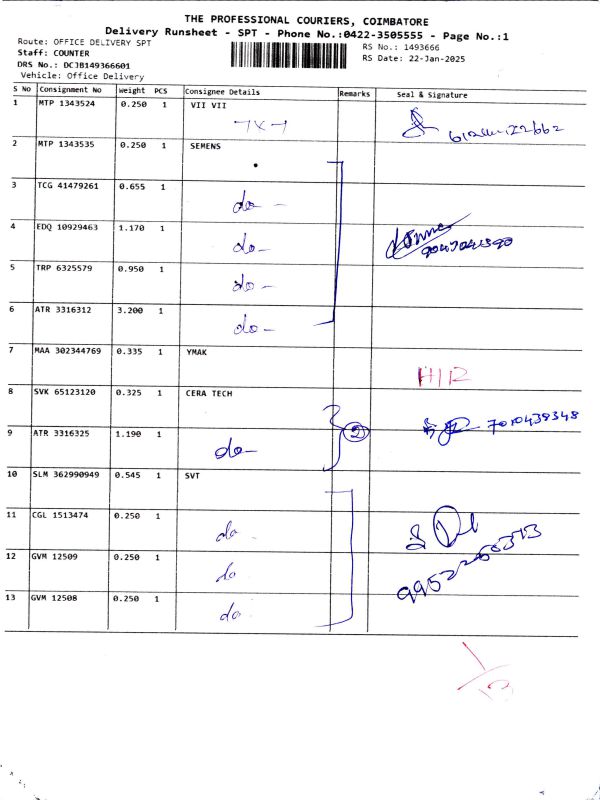 THE PROFESSIONAL COURIERS, COIMBATORE
Delivery Runsheet - SPT - Phone No.:0422-3505555 - Page No.:1
Route: OFFICE DELIVERY SPT
Staff: COUNTER
DRS No.: DCJB149366601
Vehicle: Office Delivery
RS No.: 1493666
RS Date: 22-Jan-2025
S No Consignment No Weight PCS Consignee Details Remarks Seal & Signature
1 MTP 1343524 0.250 1 VII VII
2 MTP 1343535 0.250 1 SEMENS
3 TCG 41479261 0.655 1 do -
4 EDQ 10929463 1.170 1 do -
5 TRP 6325579 0.950 1 do -
6 ATR 3316312 3.200 1 do -
7 MAA 302344769 0.335 1 YMAK H/R
8 SVK 65123120 0.325 1 CERA TECH 7010438348
9 ATR 3316325 1.190 1 do - 2
10 SLM 362990949 0.545 1 SVT
11 CGL 1513474 0.250 1 do
12 GVM 12509 0.250 1 do
13 GVM 12508 0.250 1 do